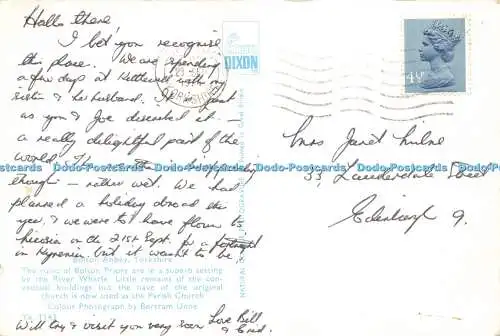 Hallo there
I bet you recognise
this place. We are spending
a few days at Kettlewell with my
sister & her husband. It is just
as you & Joe described it —
a really delightful part of the
world. The weather is disappointing
though — rather wet. We had
planned a holiday abroad this
year, & we were to have flown to
on the 21st Sept. for a fortnight
in Kyrenia, but it wasn't to be.
Will try & visit you very soon Love Bill
& Enid.
Bolton Abbey, Yorkshire
The ruins of Bolton Priory are in a superb setting
by the River Wharfe. Little remains of the con-
ventual buildings but the nave of the original
church is now used as the Parish Church
Colour Photograph by Bertram Unne
DIXON
4½
Mrs Janet Milne
33, Lauderdale Street
Edinburgh 9.
Dodo-Postcards Dodo-Postcards Dodo-Postcards Dodo-Postcards